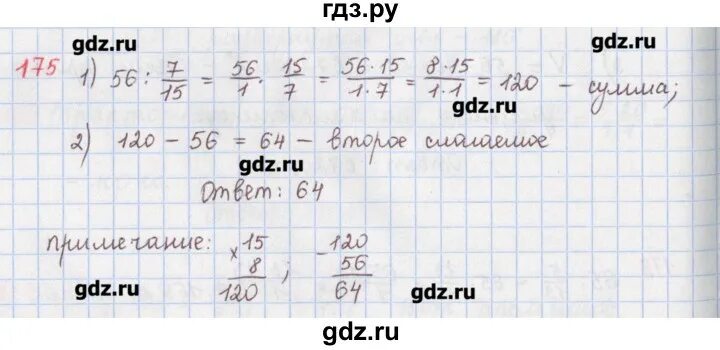 гдз.ру
gdz.ru gdz.ru
175 1) 56 : 7/15 = 56/1 · 15/7 = 56·15/1·7 = 8·15/1·1 = 120 – сумма;
gdz.ru
2) 120 – 56 = 64 – второе слагаемое
gdz.ru
Ответ: 64
примечание: × 15 8 120 ; – 120 56 64
gdz.ru gdz.ru
gdz.ru